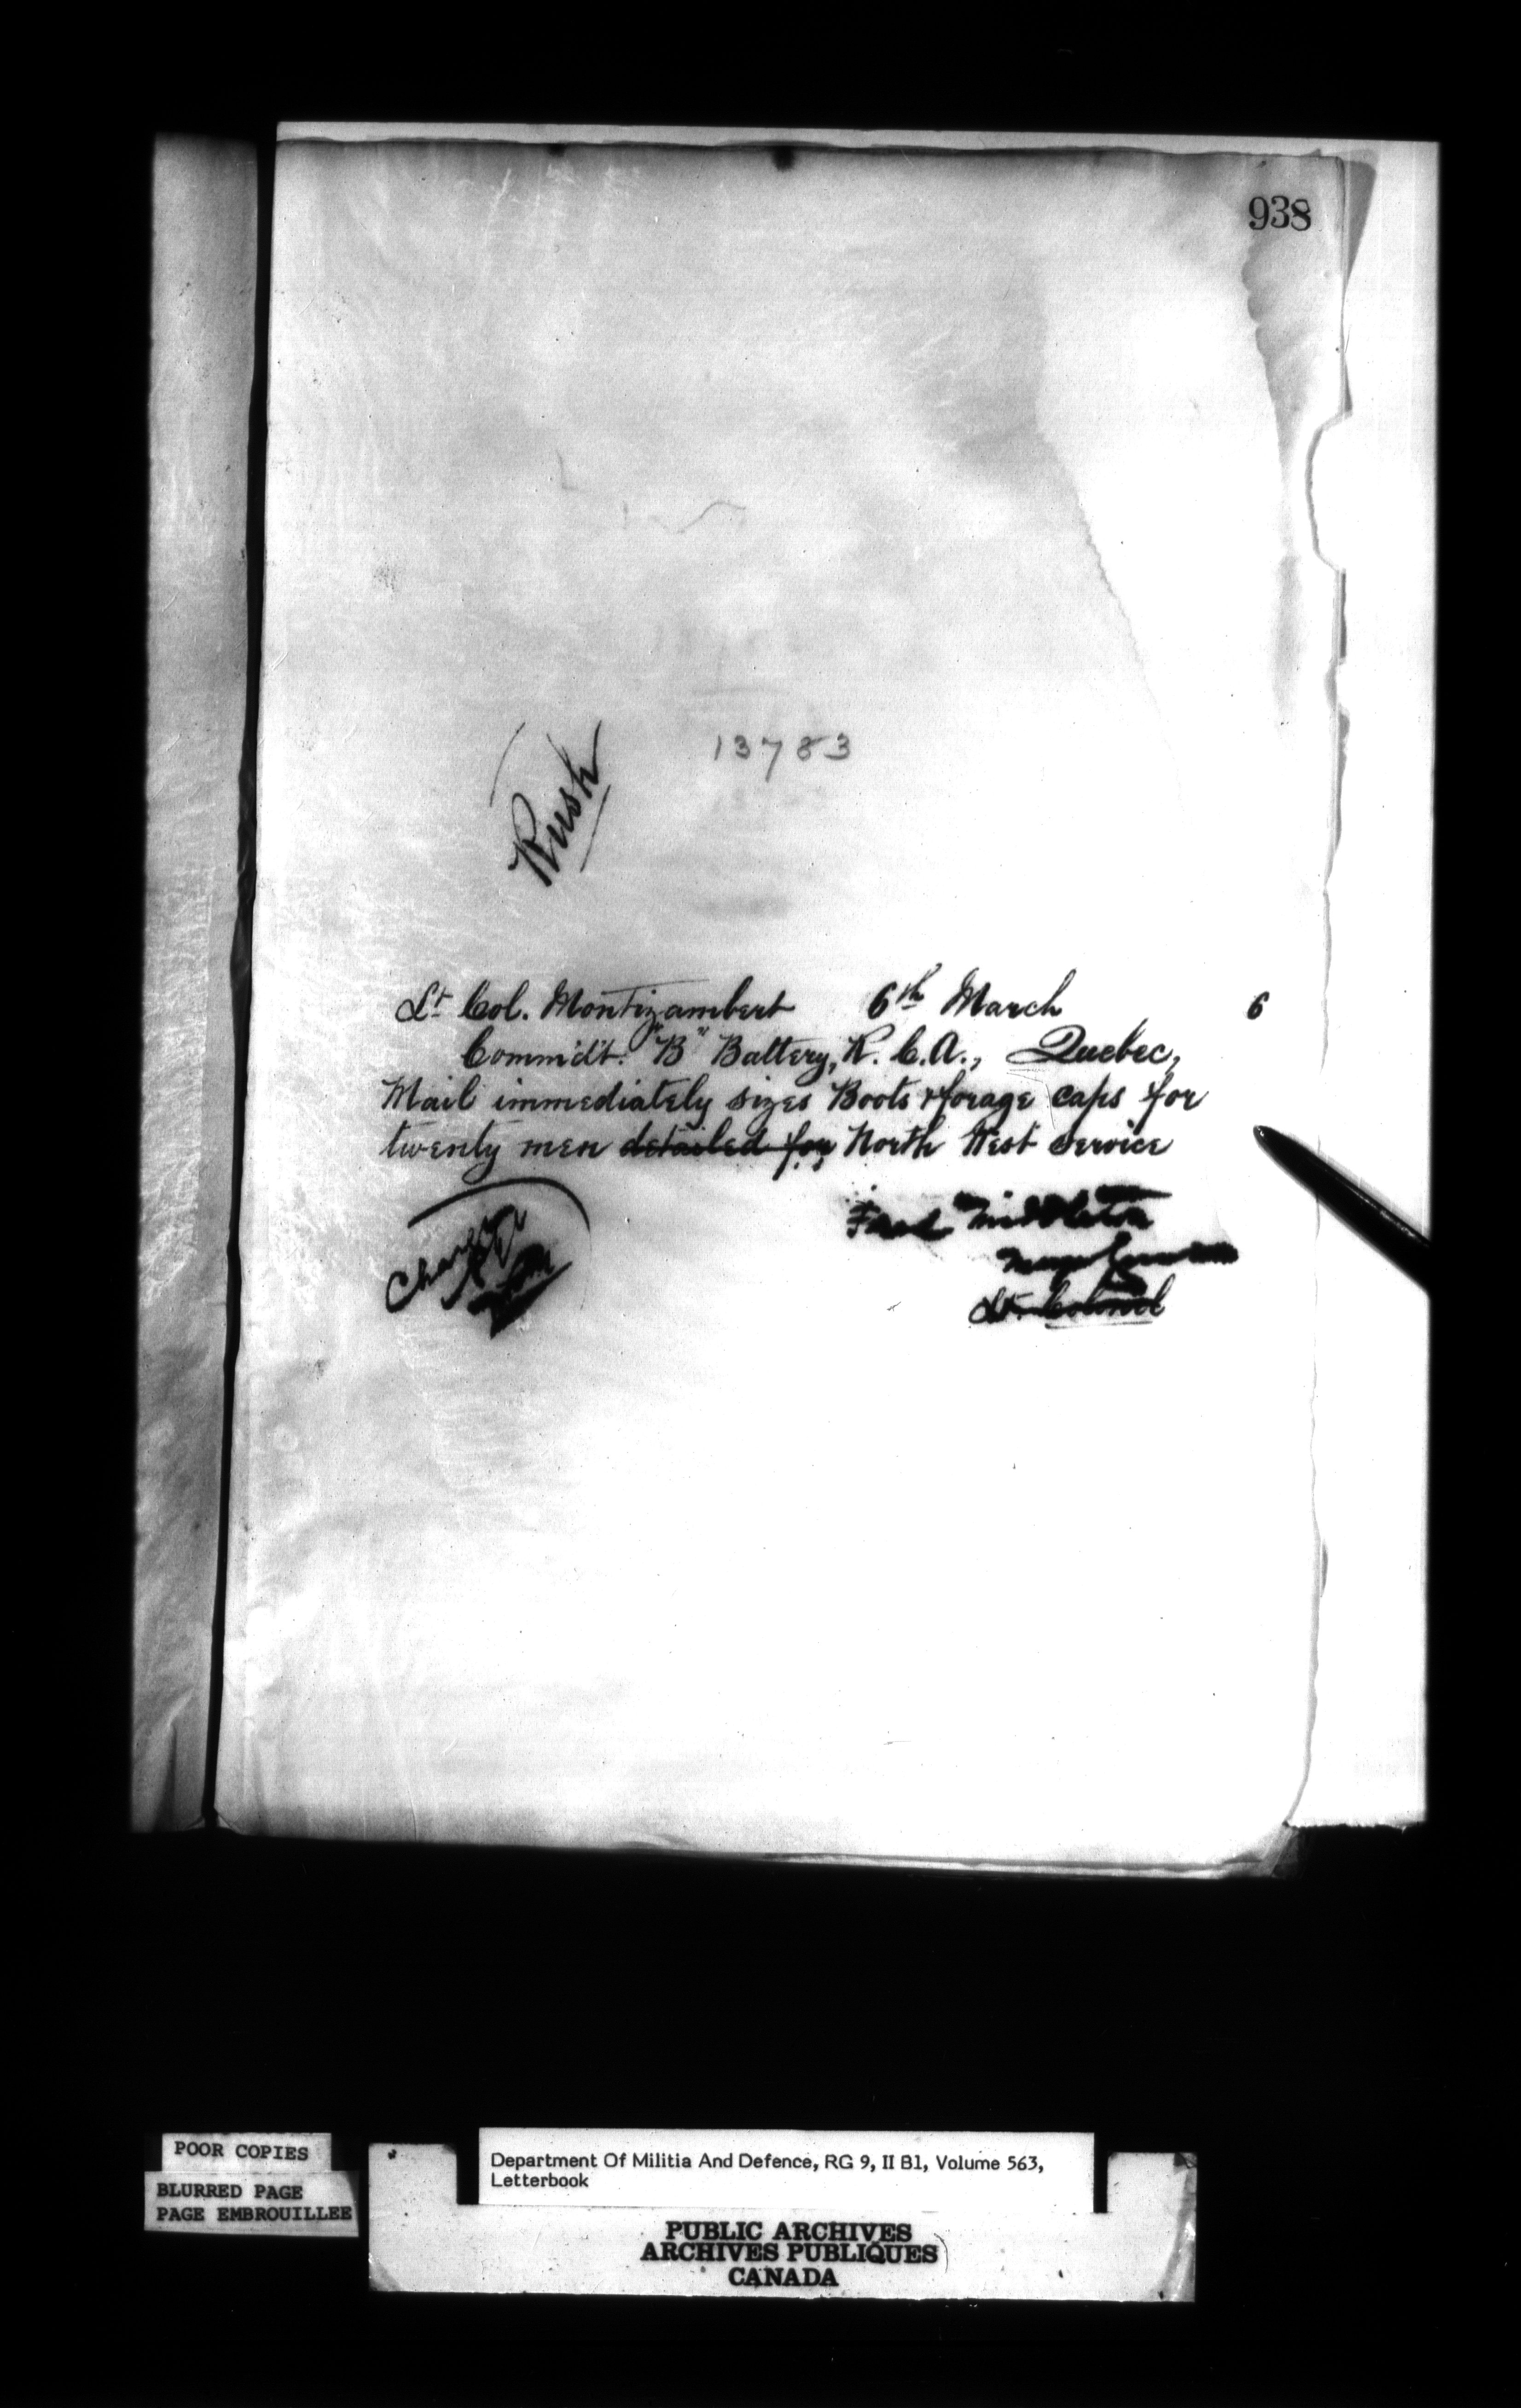 938
13783
Rush
Lt Col. Montizambert 6th March 6
Commd't. "B" Battery, R. C. A., Quebec,
Mail immediately sizes Boots & forage caps for
twenty men detailed for North West service
Fred Middleton
Charge
Lt. Colonel
POOR COPIES
BLURRED PAGE
PAGE EMBROUILLEE
Department Of Militia And Defence, RG 9, II B1, Volume 563,
Letterbook
PUBLIC ARCHIVES
ARCHIVES PUBLIQUES
CANADA